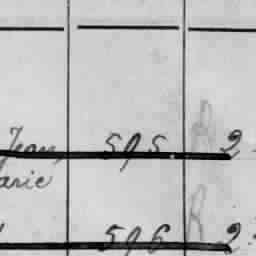 Jean, 595. R 2
arie
596 R 2.